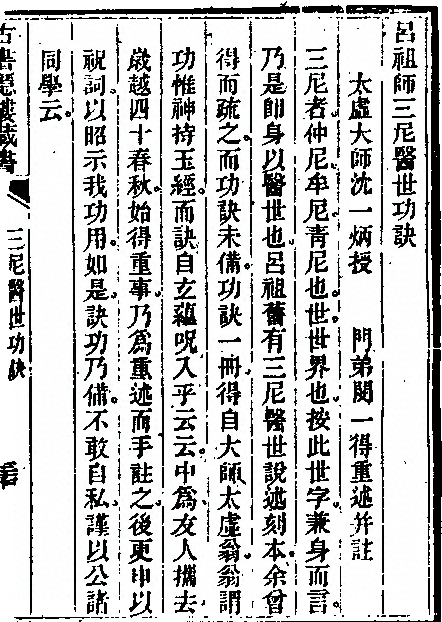 呂祖師三尼醫世功訣
太虛大師沈一炳授 門弟閔一得重述并註
三尼者。仲尼。牟尼。青尼也。世世界也。按此世字。兼身而言。
乃是即身以醫世也。呂祖舊有三尼醫世說述刻本。余曾
得而疏之。而功訣未備。功訣一冊。得自大師太虛翁。翁謂
功惟神持玉經。而訣自玄蘊呪入乎云云。中為友人攜去。
歲越四十春秋。始得重事。乃為重述而手註之。後更申以
祝詞。以昭示我功用如是。訣功乃備。不敢自私。謹以公諸
同學云。
古書隱樓藏書
三尼醫世功訣